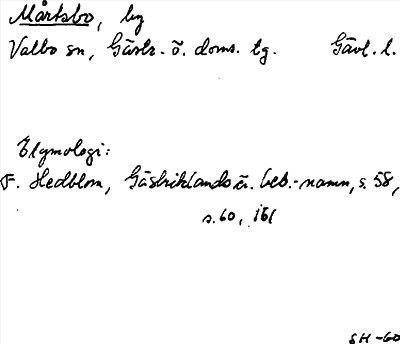 Mårtsbo, by
Valbo sn, Gästr. ö. doms. tg. Gävl. l.
Etymologi:
F. Hedblom, Gästriklands ä. beb.-namn, s. 58,
s. 60, 161
SH -60